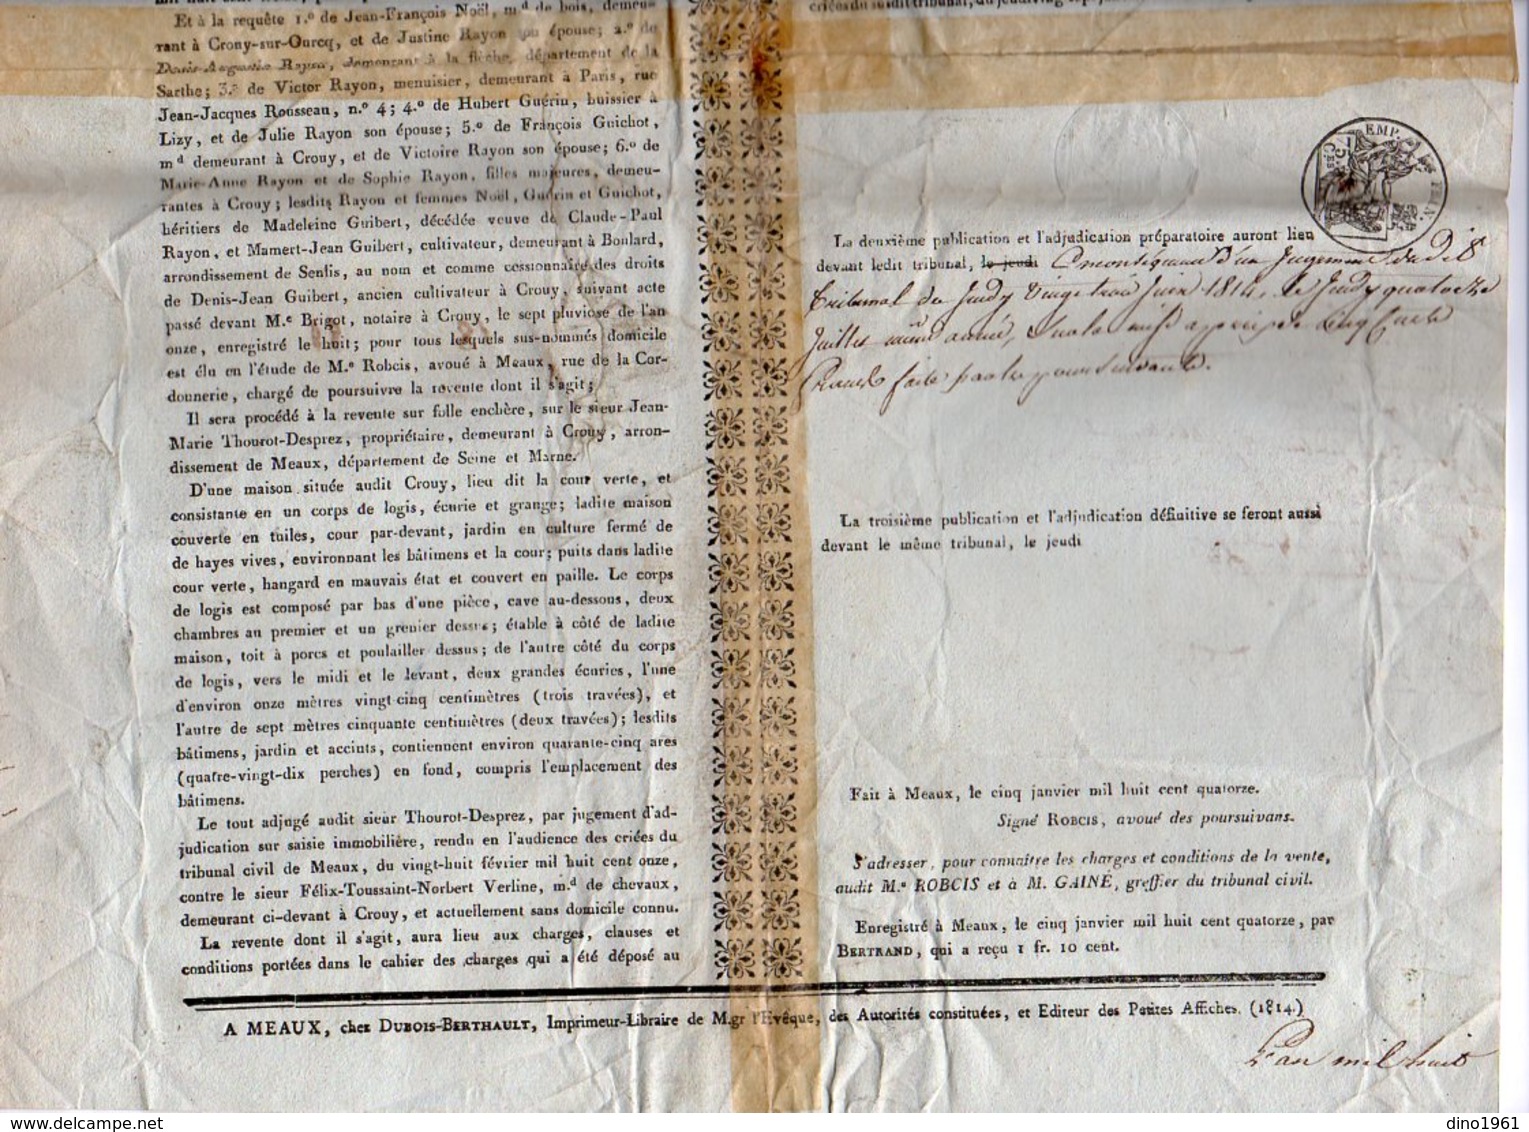 Et à la requête 1.º de Jean-François Noël, m.d de bois, demeu-
rant à Crouy-sur-Ourcq, et de Justine Rayon son épouse; 2.º de
Denis-Auguste Rayon, demeurant à la flèche, département de la
Sarthe; 3.º de Victor Rayon, menuisier, demeurant à Paris, rue
Jean-Jacques Rousseau, n.º 4; 4.º de Hubert Guérin, huissier à
Lizy, et de Julie Rayon son épouse; 5.º de François Guichot,
m.d demeurant à Crouy, et de Victoire Rayon son épouse; 6.º de
Marie-Anne Rayon et de Sophie Rayon, filles majeures, demeu-
rantes à Crouy; lesdits Rayon et femmes Noël, Guérin et Guichot,
héritiers de Madeleine Guibert, décédée veuve de Claude-Paul
Rayon, et Mamert-Jean Guibert, cultivateur, demeurant à Boulard,
arrondissement de Senlis, au nom et comme cessionnaire des droits
de Denis-Jean Guibert, ancien cultivateur à Crouy, suivant acte
passé devant M.e Brigot, notaire à Crouy, le sept pluviose de l'an
onze, enregistré le huit; pour tous lesquels sus-nommés domicile
est élu en l'étude de M.e Robcis, avoué à Meaux, rue de la Cor-
donnerie, chargé de poursuivre la revente dont il s'agit;
Il sera procédé à la revente sur folle enchère, sur le sieur Jean-
Marie Thourot-Desprez, propriétaire, demeurant à Crouy, arron-
dissement de Meaux, département de Seine et Marne.
D'une maison située audit Crouy, lieu dit la cour verte, et
consistante en un corps de logis, écurie et grange; ladite maison
couverte en tuiles, cour par-devant, jardin en culture fermé de
de hayes vives, environnant les bâtimens et la cour; puits dans ladite
cour verte, hangard en mauvais état et couvert en paille. Le corps
de logis est composé par bas d'une pièce, cave au-dessous, deux
chambres au premier et un grenier dessus; étable à côté de ladite
maison, toit à porcs et poulailler dessus; de l'autre côté du corps
de logis, vers le midi et le levant, deux grandes écuries, l'une
d'environ onze mètres vingt-cinq centimètres (trois travées), et
l'autre de sept mètres cinquante centimètres (deux travées); lesdits
bâtimens, jardin et accints, contiennent environ quarante-cinq ares
(quatre-vingt-dix perches) en fond, compris l'emplacement des
bâtimens.
Le tout adjugé audit sieur Thourot-Desprez, par jugement d'ad-
judication sur saisie immobilière, rendu en l'audience des criées du
tribunal civil de Meaux, du vingt-huit février mil huit cent onze,
contre le sieur Félix-Toussaint-Norbert Verline, m.d de chevaux,
demeurant ci-devant à Crouy, et actuellement sans domicile connu.
La revente dont il s'agit, aura lieu aux charges, clauses et
conditions portées dans le cahier des charges qui a été déposé au
EMP.
La deuxième publication et l'adjudication préparatoire auront lieu
devant ledit tribunal, le jeudi En conséquence d'un Jugement du dit
tribunal du Jeudy Vingt trois Juin 1814, le Jeudy quatorze
Juillet même année, sur la mise à prix de Cinq Cents
francs faite par les poursuivants.
La troisième publication et l'adjudication définitive se feront aussi
devant le même tribunal, le jeudi
Fait à Meaux, le cinq janvier mil huit cent quatorze.
Signé ROBCIS, avoué des poursuivans.
S'adresser, pour connaître les charges et conditions de la vente,
audit M.e ROBCIS et à M. GAINÉ, greffier du tribunal civil.
Enregistré à Meaux, le cinq janvier mil huit cent quatorze, par
BERTRAND, qui a reçu 1 fr. 10 cent.
A MEAUX, chez DUBOIS-BERTHAULT, Imprimeur-Libraire de M.gr l'Evêque, des Autorités constituées, et Editeur des Petites Affiches. (1814.)
L'an mil huit
dino1961